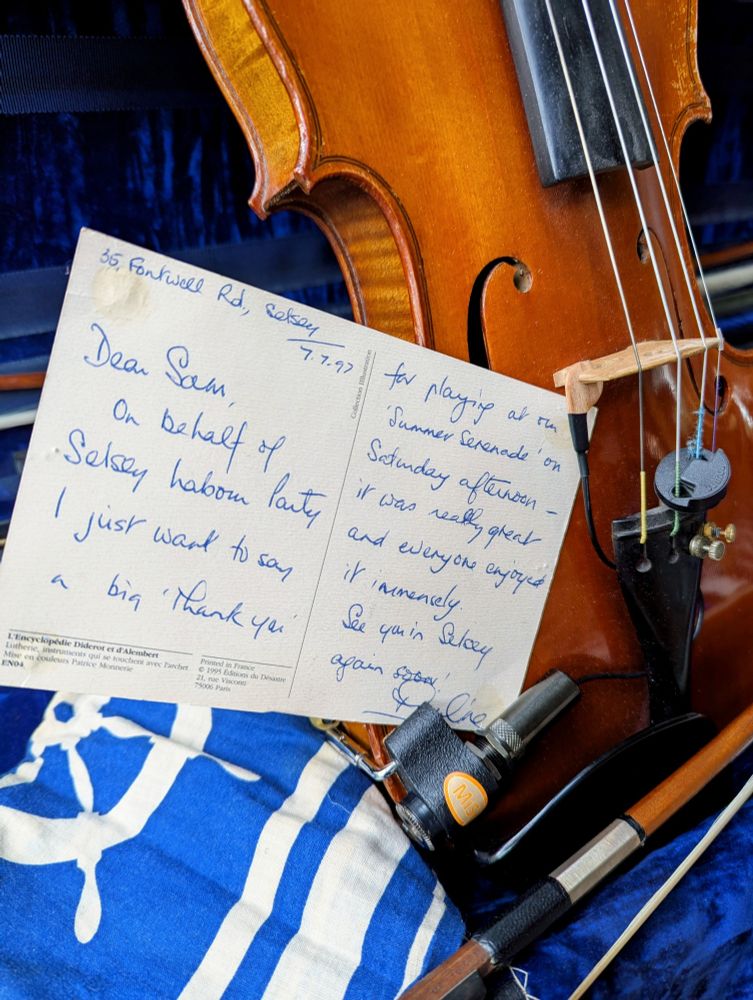 35, Fontwell Rd, Selsey
7.7.97
Dear Sam,
On behalf of
Selsey Labour Party
I just want to say
a big 'Thank you'
for playing at our
'Summer Serenade' on
Saturday afternoon -
it was really great
and everyone enjoyed
it immensely.
See you in Selsey
again soon!
Collection Illustration
L'Encyclopédie Diderot et d'Alembert
Lutherie, instruments qui se touchent avec l'archet
Mise en couleurs Patrice Monnerie
EN04
Printed in France
© 1995 Éditions du Désastre
21, rue Visconti
75006 Paris